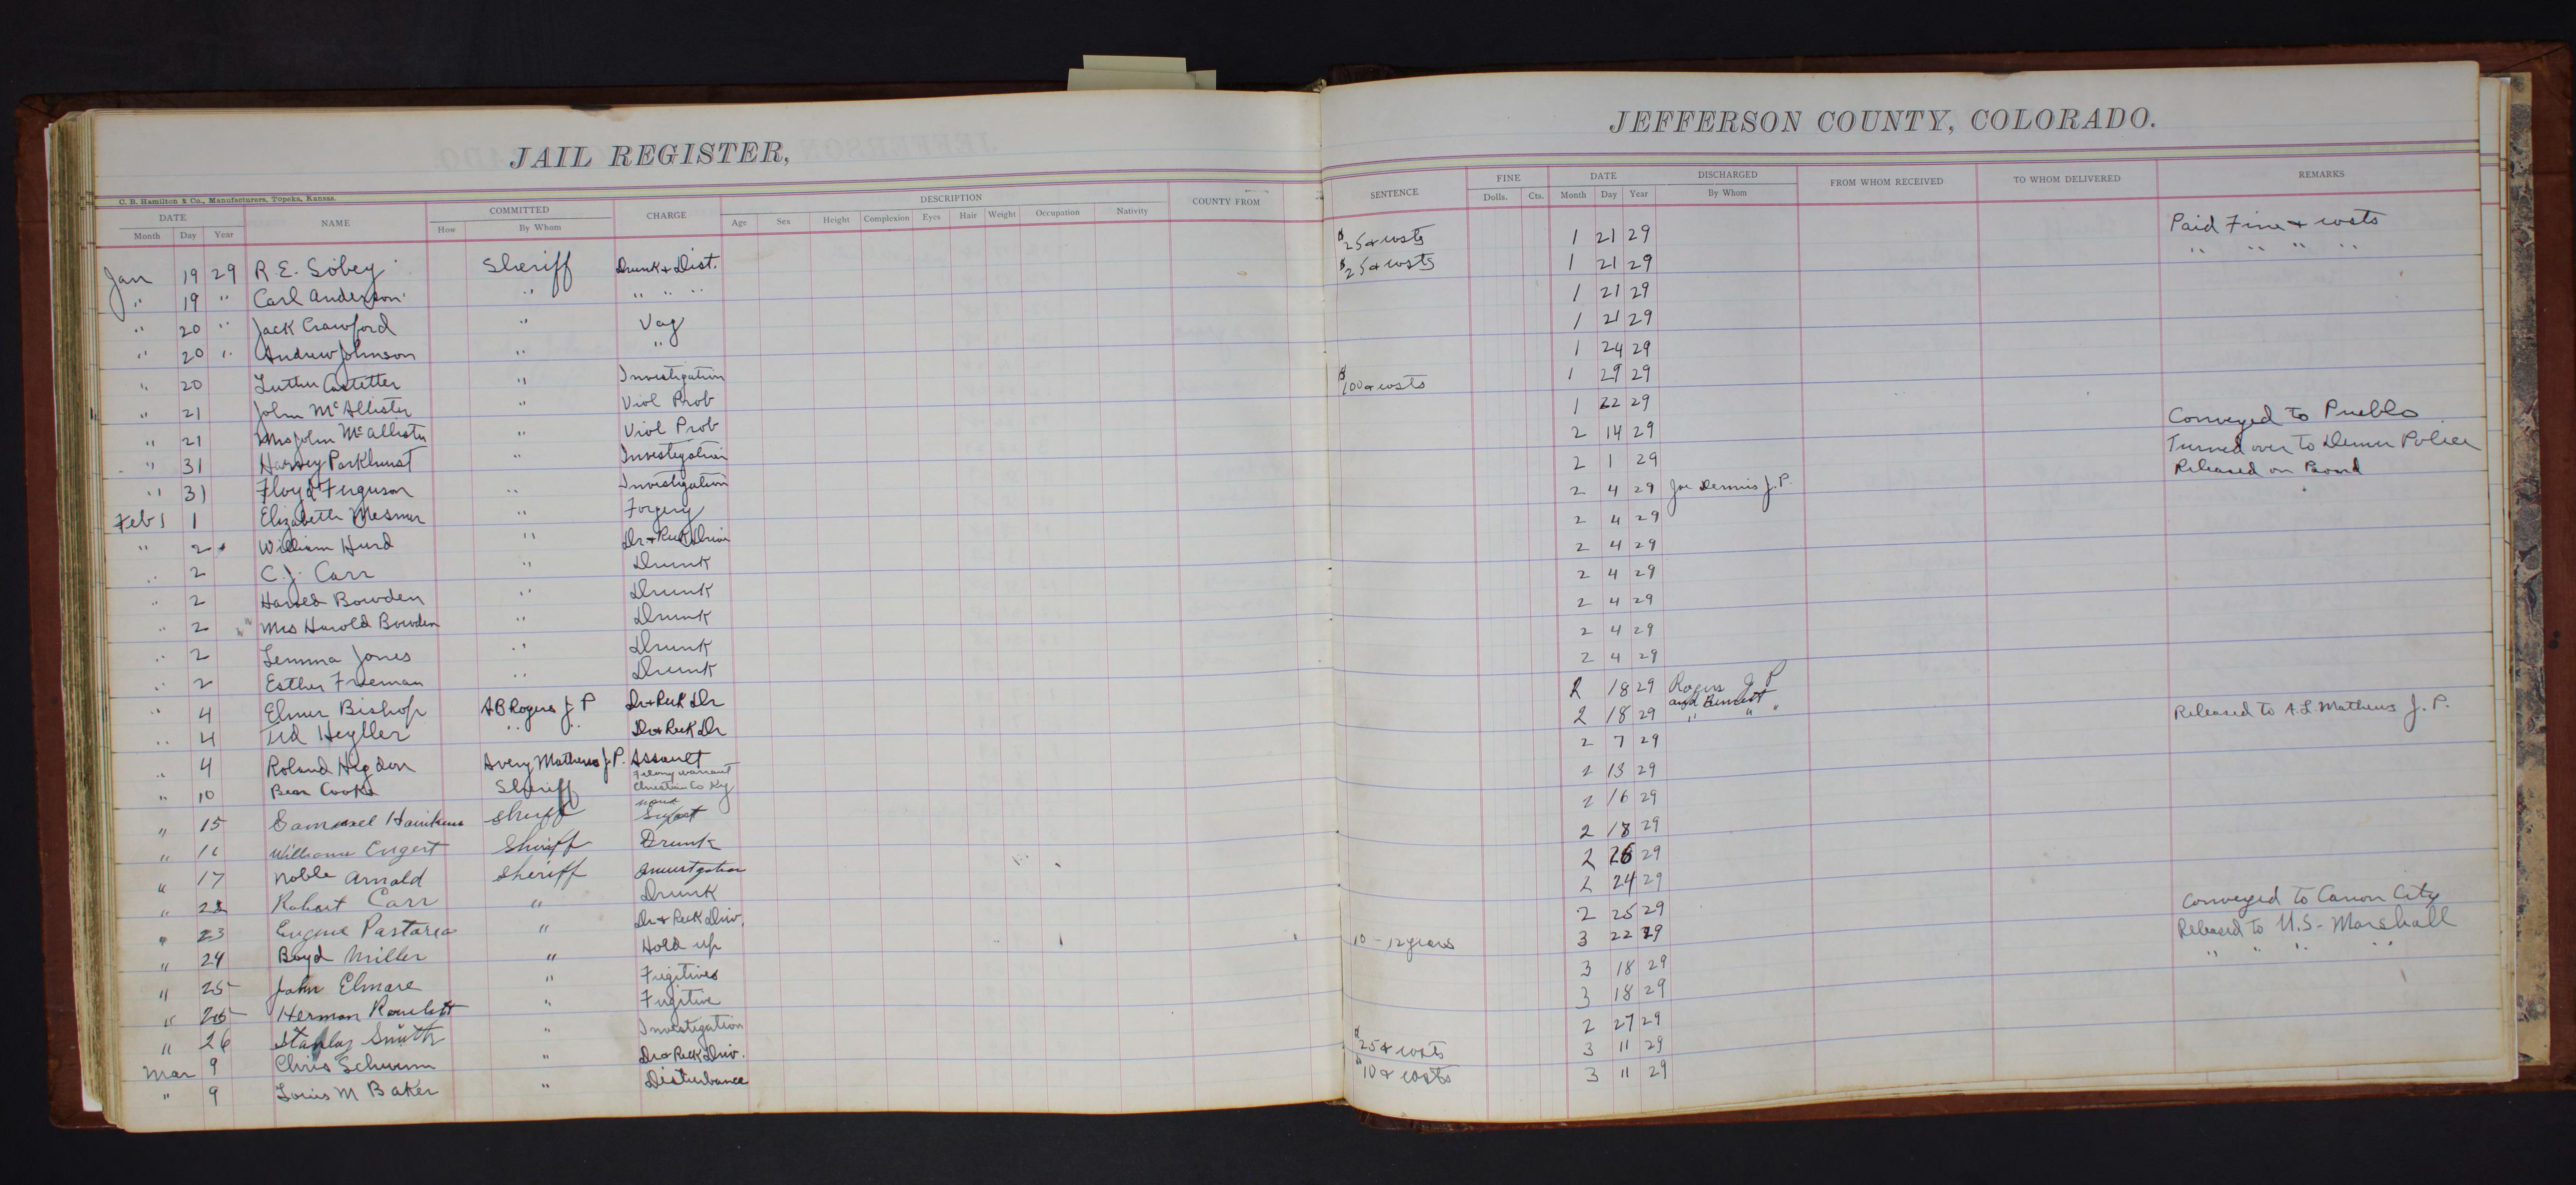 JAIL REGISTER,
C. B. Hamilton & Co., Manufacturers, Topeka, Kansas.
DATE NAME COMMITTED CHARGE DESCRIPTION COUNTY FROM
Month Day Year How By Whom Age Sex Height Complexion Eyes Hair Weight Occupation Nativity
Jan 19 29 R. E. Sobey Sheriff Drunk & Dist.
" 19 " Carl Anderson " " " "
" 20 " Jack Crawford " Vag
" 20 " Andrew Johnson " "
" 20 Luther Castetter " Investigation
" 21 John McAllister " Viol Prob
" 21 Mrs John McAllister " Viol Prob
" 31 Harvey Parkhurst " Investigation
" 31 Floyd Ferguson " Investigation
Feb 1 1 Elizabeth Mesmer " Forgery
" 2 William Hurd " Dr & Reck Driv
" 2 C. J. Carr " Drunk
" 2 Harold Bowden " Drunk
" 2 Mrs Harold Bowden " Drunk
" 2 Lemma Jones " Drunk
" 2 Esther Freeman " Drunk
" 4 Elmer Bishop A B Rogers J P Dr & Reck Dr
" 4 Ted Heyller " " Dr & Reck Dr
" 4 Roland Higdon Avery Mathews J. P. Assault
" 10 Ben Cooks Sheriff Felony warrant Christian Co Ky
" 15 Samuel Sheriff
" 16 William Engert Sheriff Drunk
" 17 Noble Arnold Sheriff Investgation
" 22 Robert Carr " Drunk
" 23 Eugene Pastorea " Dr & Reck Driv.
" 24 Boyd Miller " Hold up
" 25 John Elmare " Fugitives
" 25 Herman " Fugitive
" 26 Stanley Smith " Investigation
Mar 9 Chris Schwum " Dr & Reck Driv.
" 9 Louis M Baker " Disturbance
JEFFERSON COUNTY, COLORADO.
SENTENCE FINE DATE DISCHARGED FROM WHOM RECEIVED TO WHOM DELIVERED REMARKS
Dolls. Cts. Month Day Year By Whom
$25 & costs 1 21 29 Paid Fine & costs
$25 & costs 1 21 29 " " " "
1 21 29
1 21 29
1 24 29
$100 & costs 1 29 29
1 22 29
2 14 29 Conveyed to Pueblo
2 1 29 Turned over to Denver Police
2 4 29 Joe Dennis J. P. Released on Bond
2 4 29
2 4 29
2 4 29
2 4 29
2 4 29
2 4 29
2 18 29 Rogers J P and Bennett
2 18 29 " " "
2 7 29 Released to A. L. Mathews J. P.
2 13 29
2 16 29
2 18 29
2 29
2 24 29
2 25 29
10 - 12 years 3 22 29 Conveyed to Canon City
3 18 29 Released to U. S. Marshall
3 18 29 " " " "
2 27 29
$25 & costs 3 11 29
"10 & costs 3 11 29